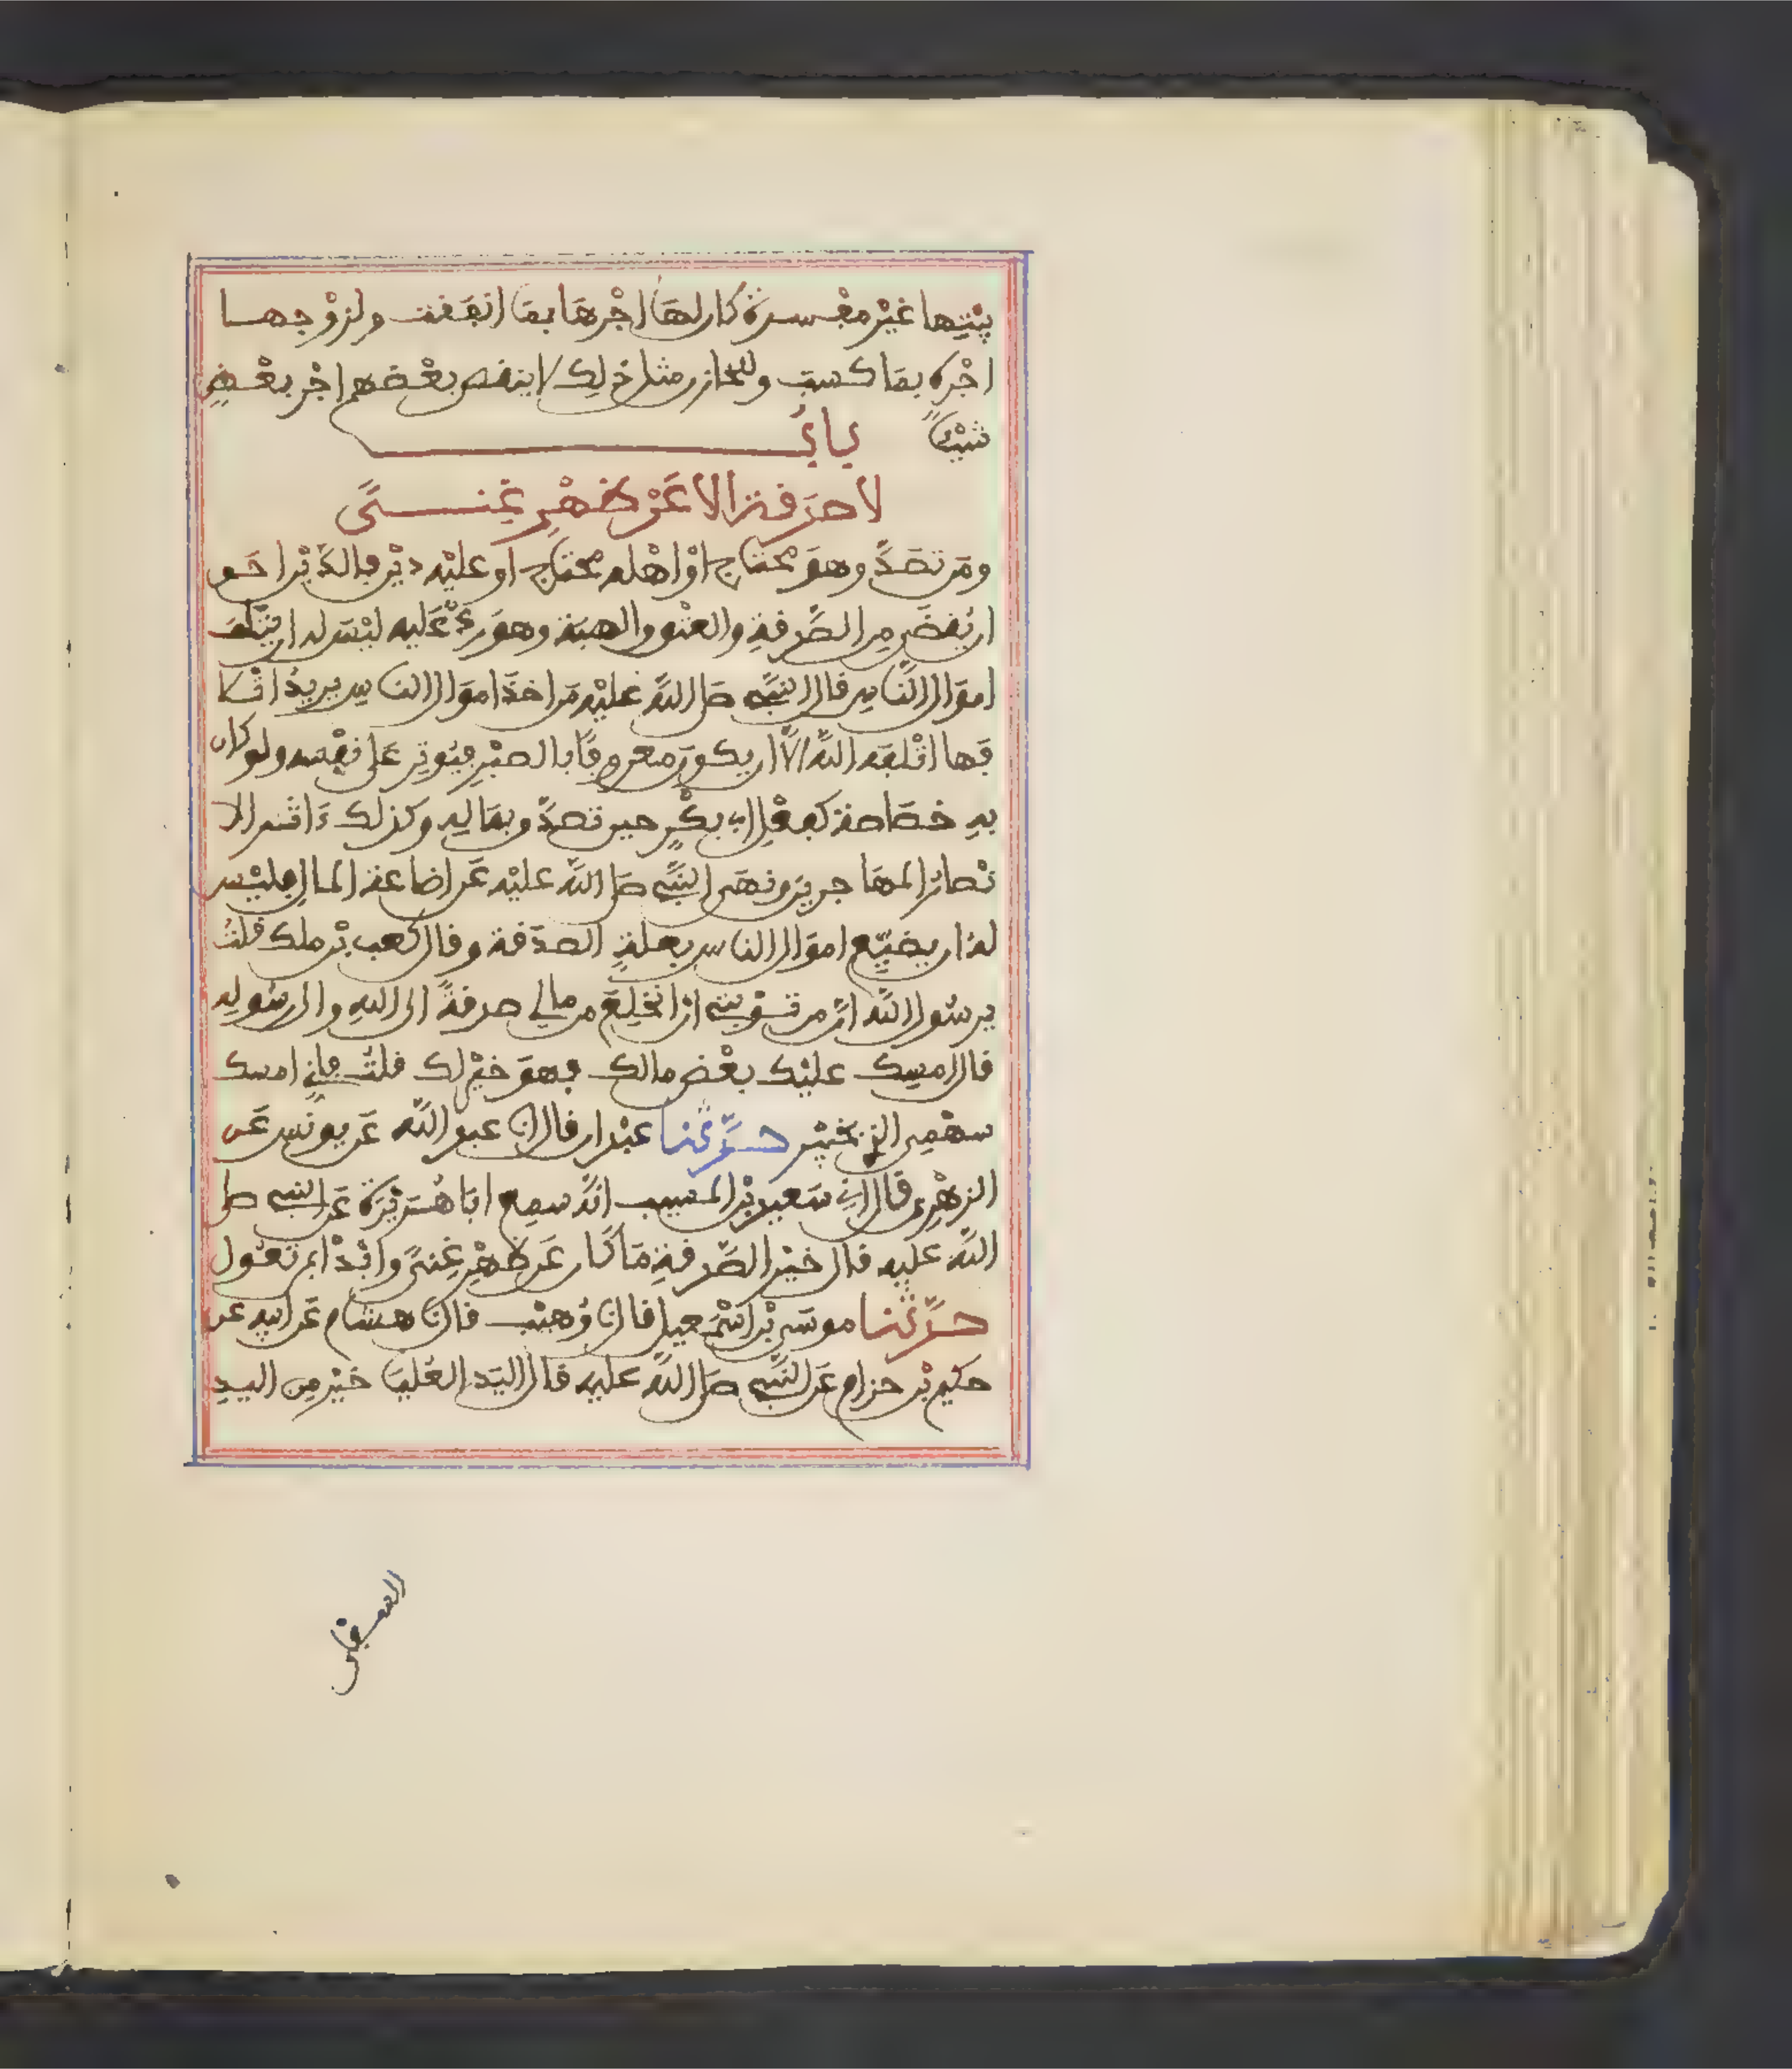 بيتها غير مفسدة كان لها اجرها بما انفقت ولزوجها
اجره بما كسب وللخازن مثل ذلك لا ينقص بعضهم اجر بعض
شيئا باب
لا صدقة الا عن ظهر غنى
ومن تصدق وهو محتاج او اهله محتاج او عليه دين فالدين احق
ان يقضى من الصدقة والعتق والهبة وهو رد عليه ليس له ان يتلف
اموال الناس قال النبي صلى الله عليه من اخذ اموال الناس يريد اتلا
فها اتلفه الله الا ان يكون معروفا بالصبر فيوثر على نفسه ولو كان
به خصاصة كفعل ابي بكر حين تصدق بماله وكذلك ءاثر الا
نصار المهاجرين ونهى النبي صلى الله عليه عن اضاعة المال فليس
له ان يضيع اموال الناس بعلة الصدقة وقال كعب بن ملك قلت
يرسول الله ان من توبتي ان انخلع من مالي صدقة الى الله والى رسوله
قال امسك عليك بعض مالك فهو خير لك قلت فاني امسك
سهمي الذي بخيبر حدثنا عبدان قال انا عبد الله عن يونس عن
الزهري قال اني سعيد بن المسيب انه سمع ابا هريرة عن النبي صلى
الله عليه قال خير الصدقة ما كان عن ظهر غنى وابدا بمن تعول
حدثنا موسى بن اسمعيل قال نا وهيب قال نا هشام عن ابيه عن
حكيم بن حزام عن النبي صلى الله عليه قال اليد العليا خير من اليد
السفلى